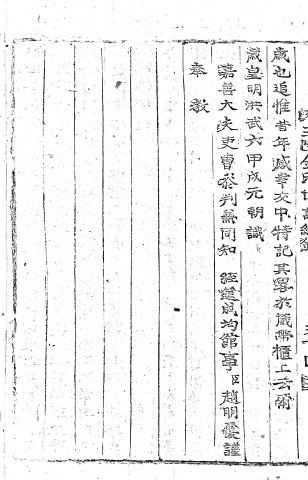 歲也追惟昔年感幸交中特記其畧於藏幣櫃上云爾
歲皇明洪武六甲戌元朝識
嘉善大夫吏曹參判兼同知 經筵成均館事臣趙明履謹
奉敎